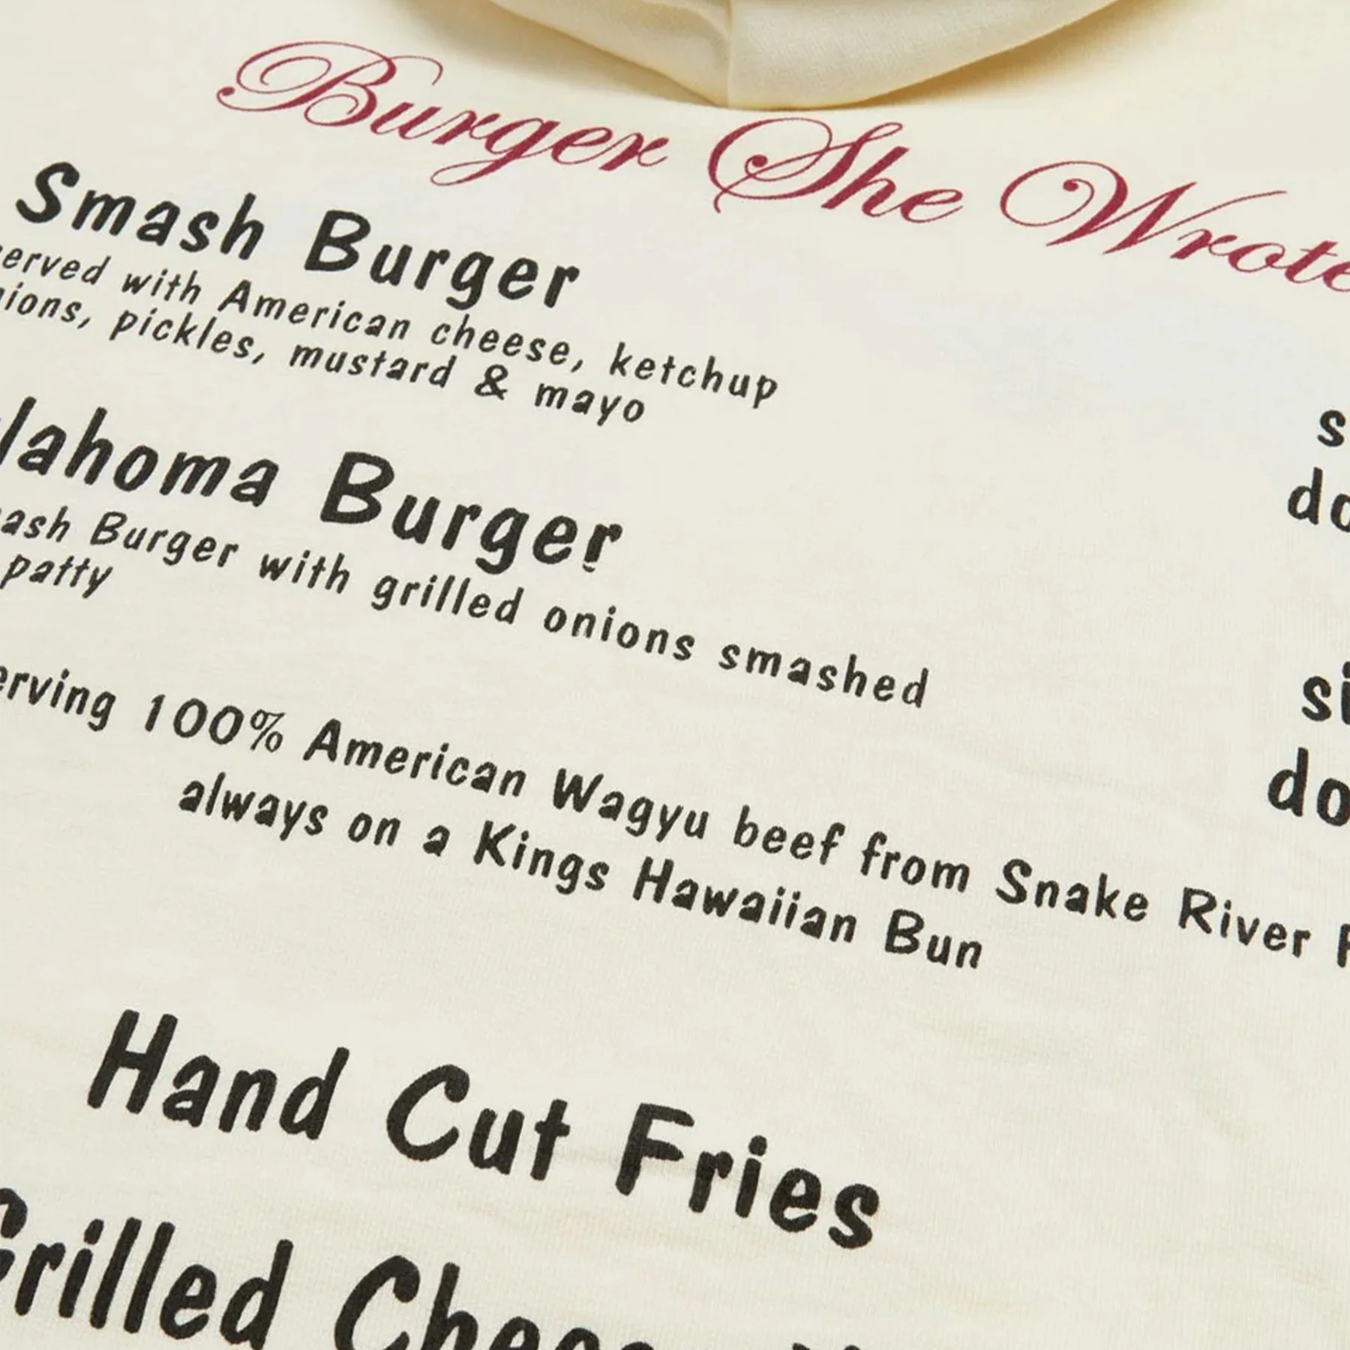 Burger She Wrote
Smash Burger
served with American cheese, ketchup
onions, pickles, mustard & mayo
Oklahoma Burger
Smash Burger with grilled onions smashed
patty
serving 100% American Wagyu beef from Snake River
always on a Kings Hawaiian Bun
Hand Cut Fries
Grilled Cheese